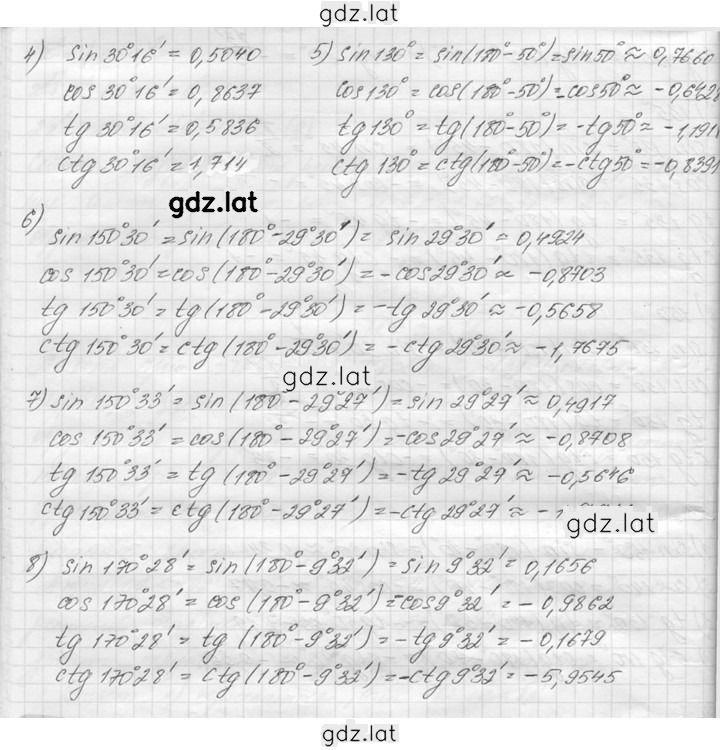 gdz.lat
4) sin 30°16' = 0,5040 5) sin 130° = sin(180°-50°) = sin 50° ≈ 0,7660
cos 30°16' = 0,8637 cos 130° = cos(180°-50°) = -cos 50° ≈ -0,6428
tg 30°16' = 0,5836 tg 130° = tg(180°-50°) = -tg 50° ≈ -1,191
ctg 30°16' = 1,714 ctg 130° = ctg(180°-50°) = -ctg 50° = -0,8391
gdz.lat
6) sin 150°30' = sin(180°-29°30') = sin 29°30' = 0,4924
cos 150°30' = cos(180°-29°30') = -cos 29°30' ≈ -0,8703
tg 150°30' = tg(180°-29°30') = -tg 29°30' ≈ -0,5658
ctg 150°30' = ctg(180°-29°30') = -ctg 29°30' ≈ -1,7675
gdz.lat
7) sin 150°33' = sin(180-29°27') = sin 29°27' ≈ 0,4917
cos 150°33' = cos(180°-29°27') = -cos 29°27' ≈ -0,8708
tg 150°33' = tg(180°-29°27') = -tg 29°27' ≈ -0,5646
ctg 150°33' = ctg(180°-29°27') = -ctg 29°27' ≈
gdz.lat
8) sin 170°28' = sin(180°-9°32') = sin 9°32' = 0,1656
cos 170°28' = cos(180°-9°32') = -cos 9°32' = -0,9862
tg 170°28' = tg(180°-9°32') = -tg 9°32' = -0,1679
ctg 170°28' = ctg(180°-9°32') = -ctg 9°32' = -5,9545
gdz.lat